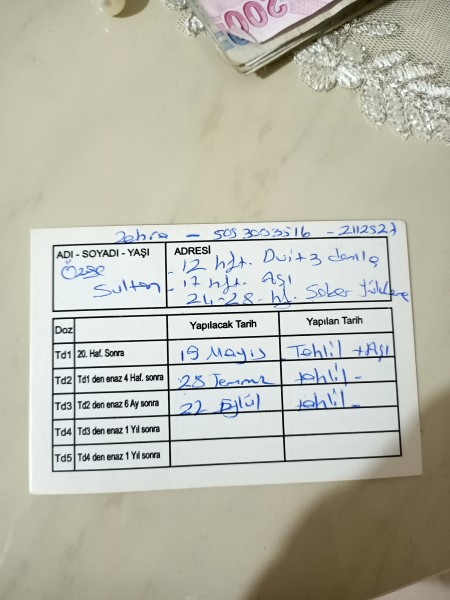 Zehra - 5053003516 - 2112527
ADI - SOYADI - YAŞI
ADRESİ
Özge
Sultan
- 12 hft. D vit 3 damla
- 17 hft. Aşı
24-28. hf. Şeker Yükleme
Doz
Yapılacak Tarih
Yapılan Tarih
Td1 20. Haf. Sonra 19 Mayıs Tahlil + Aşı
Td2 Td1 den enaz 4 Haf. sonra 28 Temmuz tahlil -
Td3 Td2 den enaz 6 Ay sonra 22 Eylül tahlil -
Td4 Td3 den enaz 1 Yıl sonra
Td5 Td4 den enaz 1 Yıl sonra
200